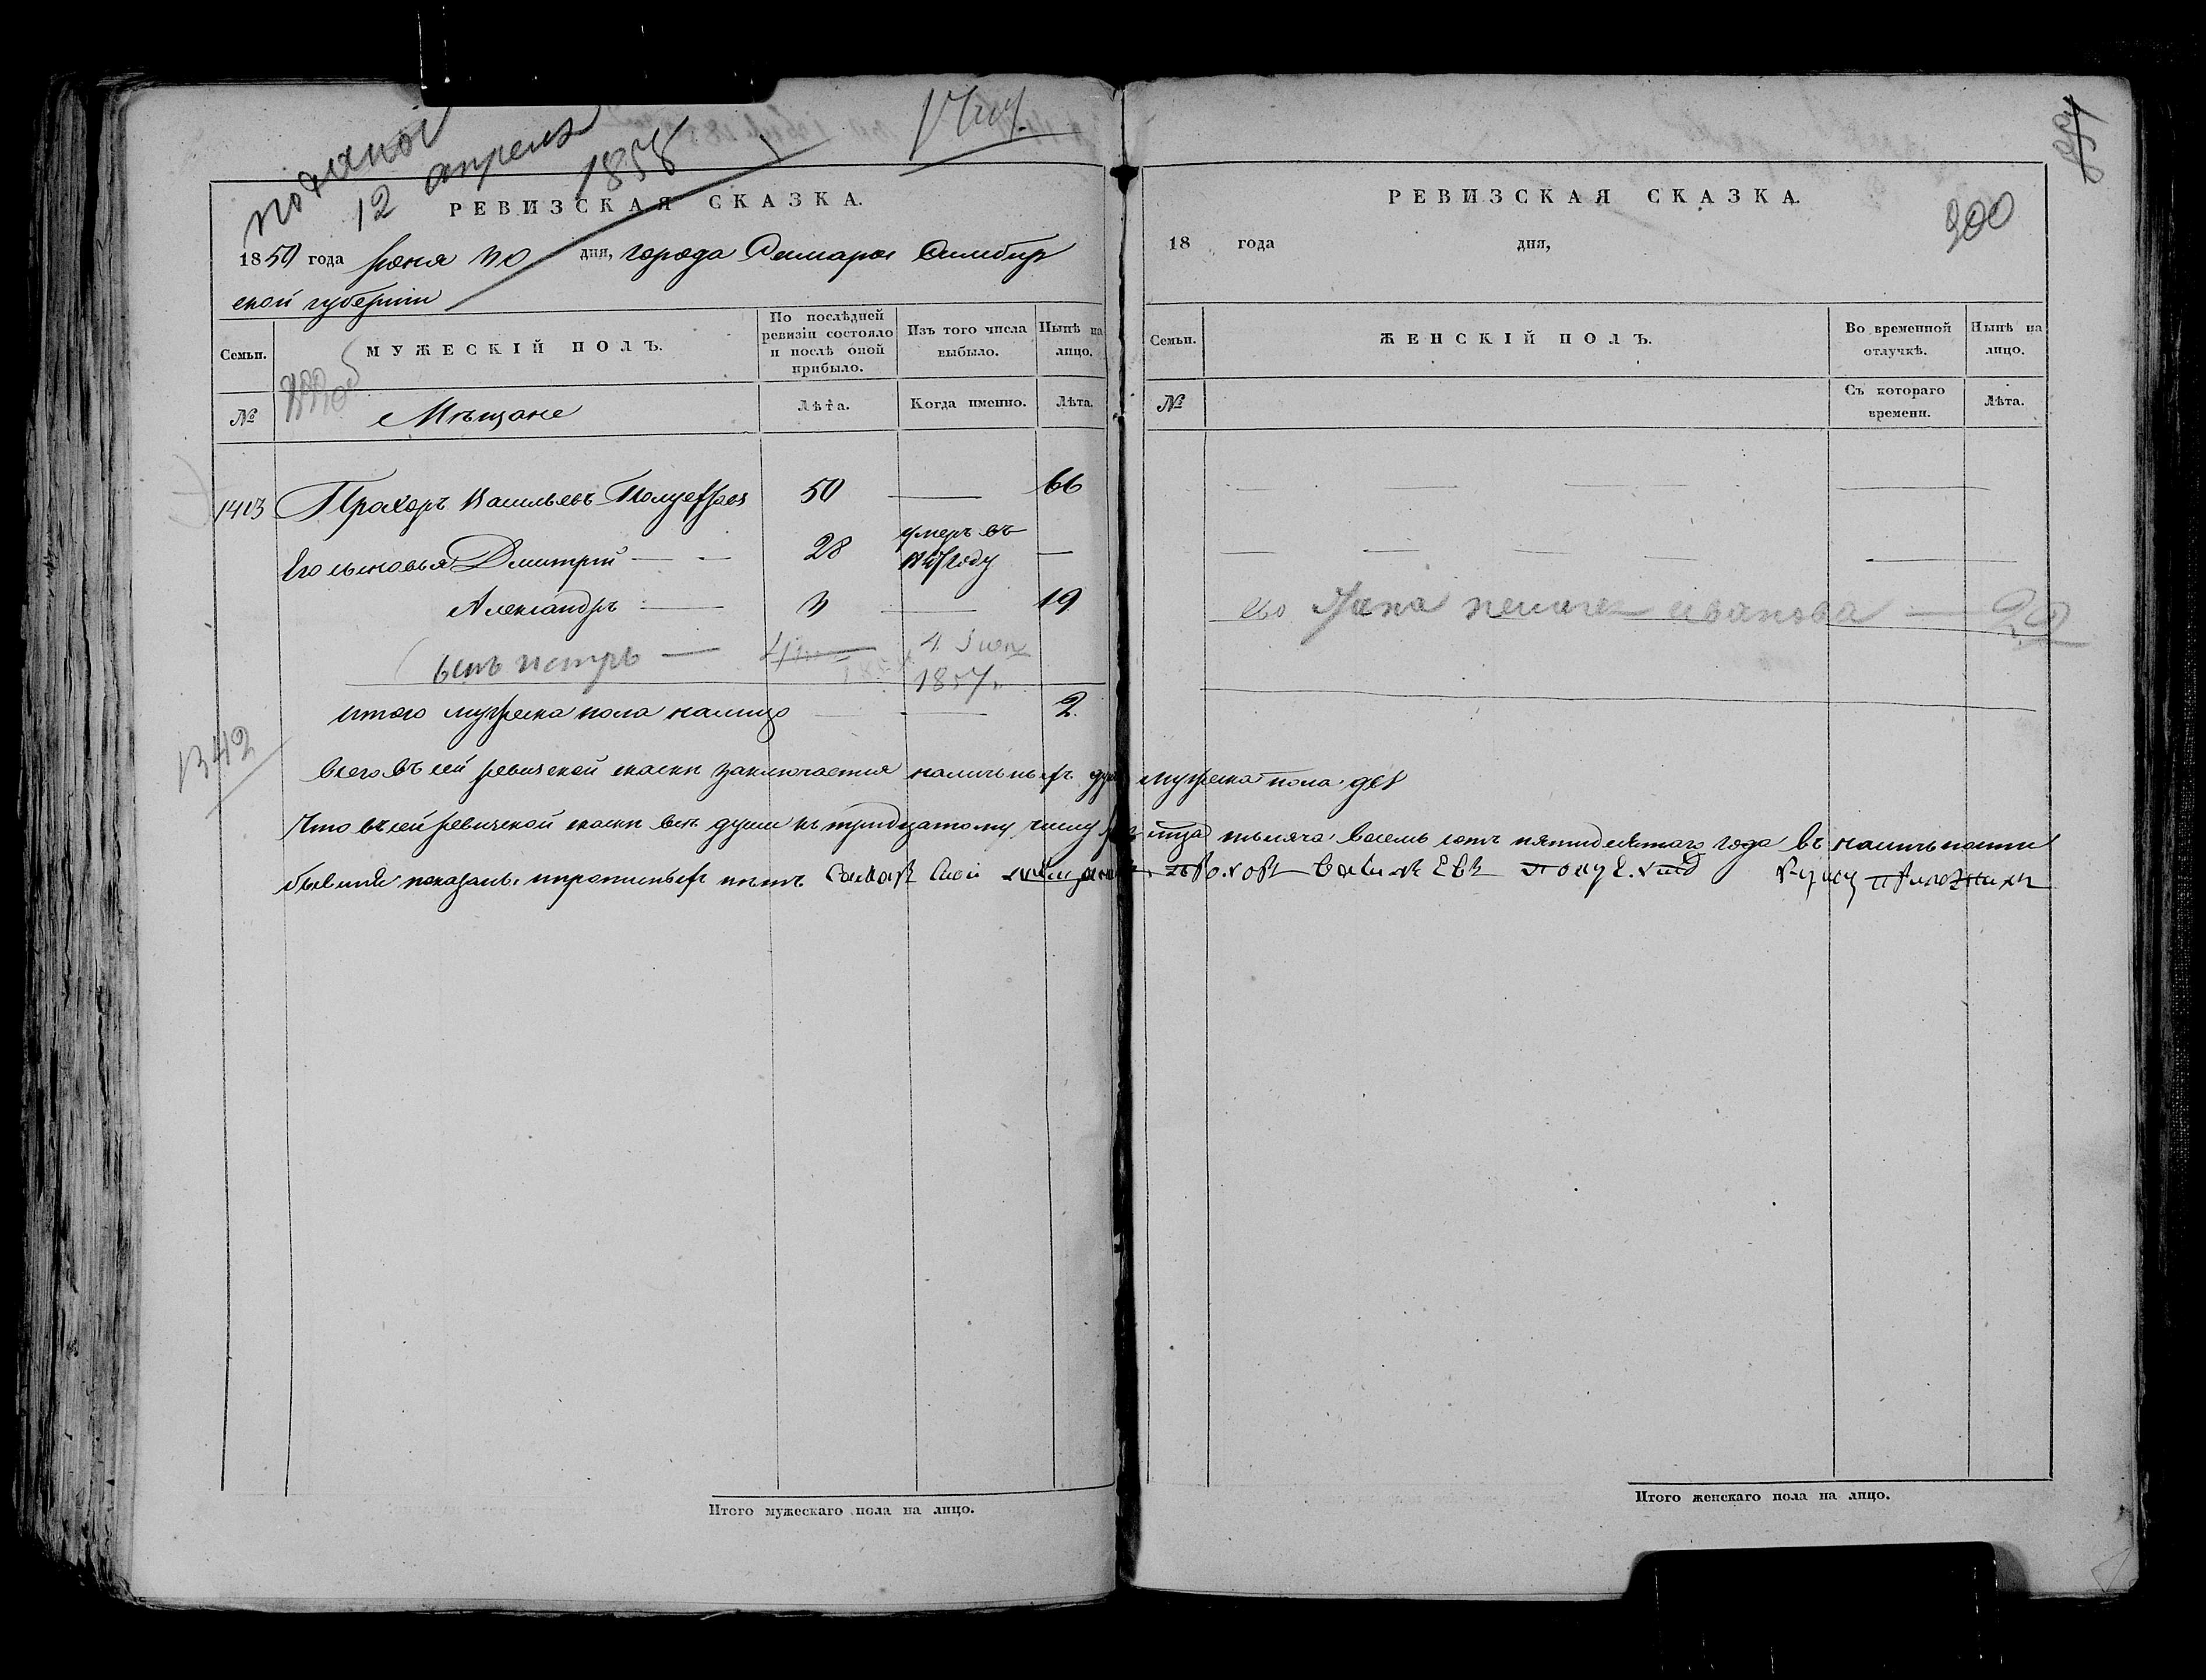 12 апреля
1858
РЕВИЗСКАЯ СКАЗКА.
1850 года июня 30 дня, города Самары Симбир
ской губернiи
Семьи.
МУЖЕСКІЙ ПОЛЪ.
По послѣдней ревизіи состояло и послѣ оной прибыло.
Изъ того числа выбыло.
Нынѣ на лицо.
№
Мѣщане
Лѣта.
Когда именно.
Лѣта.
1413 Прохоръ Васильевъ 50 — 66
Его сыновья Дмитрий — 28 умеръ въ году —
Александръ — 3 — 19
сынъ петръ —
1857
итого мужеска пола налицо — 2
1342
Всего въ сей ревизской сказки заключается наличныхъ душъ мужеска пола две
Что въ сей ревизской сказки все души къ тридцатому числу тысяча восемь сотъ пятидесятого года въ наличности
бывшие показаны и прописныхъ нетъ
РЕВИЗСКАЯ СКАЗКА.
200
18 года дня,
Семьи.
ЖЕНСКІЙ ПОЛЪ.
Во временной отлучкѣ.
Нынѣ на лицо.
№
Съ котораго времени.
Лѣта.
его жена иванова —
Итого мужескаго пола на лицо.
Итого женскаго пола на лицо.